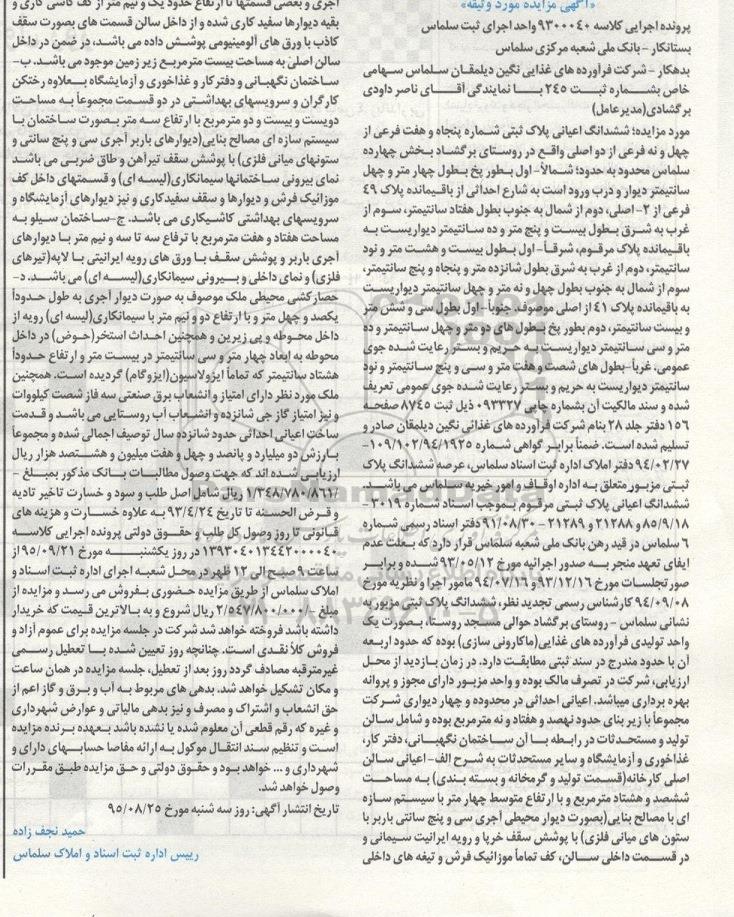 «آگهی مزایده مورد وثیقه»
پرونده اجرایی کلاسه ۹۳۰۰۰۴۰ واحد اجرای ثبت سلماس
بستانکار - بانک ملی شعبه مرکزی سلماس
بدهکار - شرکت فرآورده های غذایی نگین دیلمقان سلماس سهامی
خاص بشماره ثبت ۲۴۵ با نمایندگی آقای ناصر داودی
برگشادی(مدیرعامل)
مورد مزایده؛ ششدانگ اعیانی پلاک ثبتی شماره پنجاه و هفت فرعی از
چهل و نه فرعی از دو اصلی واقع در روستای برگشاد بخش چهارده
سلماس محدود به حدود؛ شمالاً- اول بطور پخ بطول چهار متر و چهل
سانتیمتر دیوار و درب ورود است به شارع احداثی از باقیمانده پلاک ۴۹
فرعی از ۲- اصلی، دوم از شمال به جنوب بطول هفتاد سانتیمتر، سوم از
غرب به شرق بطول بیست و پنج متر و ده سانتیمتر دیواریست به
باقیمانده پلاک مرقوم، شرقاً- اول بطول بیست و هشت متر و نود
سانتیمتر، دوم از غرب به شرق بطول شانزده متر و پنجاه و پنج سانتیمتر،
سوم از شمال به جنوب بطول چهل و نه متر و چهل سانتیمتر دیواریست
به باقیمانده پلاک ۴۱ از اصلی موصوف، جنوباً- اول بطول سی و شش متر
و بیست سانتیمتر، دوم بطور پخ بطول های دو متر و چهل سانتیمتر و ده
متر و سی سانتیمتر دیواریست به حریم و بستر رعایت شده جوی
عمومی، غرباً- بطول های شصت و هفت متر و سی و پنج سانتیمتر و نود
سانتیمتر دیواریست به حریم و بستر رعایت شده جوی عمومی تعریف
شده و سند مالکیت آن بشماره چاپی ۰۹۳۳۲۷ ذیل ثبت ۸۷۴۵ صفحه
۱۵۶ دفتر جلد ۲۸ بنام شرکت فرآورده های غذائی نگین دیلمقان صادر و
تسلیم شده است. ضمناً برابر گواهی شماره ۱۰۹/۱۰۲/۹۴/۱۹۲۵-
۹۴/۰۲/۲۷ دفتر املاک اداره ثبت اسناد سلماس، عرصه ششدانگ پلاک
ثبتی مزبور متعلق به اداره اوقاف و امور خیریه سلماس می باشد.
ششدانگ اعیانی پلاک ثبتی مرقوم بموجب اسناد شماره ۳۰۱۹ -
۸۵/۹/۱۸ و ۲۱۲۸۸ و ۲۱۲۸۹ - ۹۱/۰۸/۳۰ دفتر اسناد رسمی شماره
۶ سلماس در قید رهن بانک ملی شعبه سلماس قرار دارد که بعلت عدم
ایفای تعهد منجر به صدور اجرائیه مورخ ۹۳/۰۵/۱۲ شده و برابر
صورتجلسات مورخ ۹۳/۱۲/۱۶ و ۹۴/۰۷/۱۶ مامور اجرا و نظریه مورخ
۹۴/۰۹/۰۸ کارشناس رسمی تجدید نظر، ششدانگ پلاک ثبتی مزبور به
نشانی سلماس - روستای برگشاد حوالی مسجد روستا، بصورت یک
واحد تولیدی فرآورده های غذایی(ماکارونی سازی) بوده که حدود اربعه
آن با حدود مندرج در سند ثبتی مطابقت دارد. در زمان بازدید از محل
ارزیابی، شرکت در تصرف مالک بوده و واحد مزبور دارای مجوز و پروانه
بهره برداری میباشد. اعیانی احداثی در محدوده و چهار دیواری شرکت
مجموعاً با زیر بنای حدود نهصد و هفتاد و نه مترمربع بوده و شامل سالن
تولید و مستحدثات در رابطه با آن ساختمان نگهبانی، دفتر کار،
غذاخوری و آزمایشگاه و سایر مستحدثات به شرح الف- اعیانی سالن
اصلی کارخانه(قسمت تولید و گرمخانه و بسته بندی) به مساحت
ششصد و هشتاد مترمربع و با ارتفاع متوسط چهار متر با سیستم سازه
ای با مصالح بنایی(بصورت دیوار محیطی آجری سی و پنج سانتی باربر با
ستون های میانی فلزی) با پوشش سقف خرپا و رویه ایرانیت سیمانی و
در قسمت داخلی سالن، کف تماماً موزائیک فرش و تیغه های داخلی
آجری و بعضی قسمتها تا ارتفاع حدود یک و نیم متر از کف کاشی کاری و
بقیه دیوارها سفید کاری شده و از داخل سالن قسمت های بصورت سقف
کاذب با ورق های آلومینیومی پوشش داده می باشد، در ضمن در داخل
سالن اصلی به مساحت بیست مترمربع زیر زمین موجود می باشد. ب-
ساختمان نگهبانی و دفتر کار و غذاخوری و آزمایشگاه بعلاوه رختکن
کارگران و سرویسهای بهداشتی در دو قسمت مجموعاً به مساحت
دویست و بیست و دو مترمربع با ارتفاع سه متر بصورت ساختمان با
سیستم سازه ای مصالح بنایی(دیوارهای باربر آجری سی و پنج سانتی و
ستونهای میانی فلزی) با پوشش سقف تیرآهن و طاق ضربی می باشد
نمای بیرونی ساختمانها سیمانکاری(لیسه ای) و قسمتهای داخل کف
موزائیک فرش و دیوارها و سقف سفیدکاری و نیز دیوارهای آزمایشگاه و
سرویسهای بهداشتی کاشیکاری می باشد. ج-ساختمان سیلو به
مساحت هفتاد و هفت مترمربع با ترفاع سه تا سه و نیم متر با دیوارهای
آجری باربر و پوشش سقف با ورق های رویه ایرانیتی با لاپه(تیرهای
فلزی) و نمای داخلی و بیرونی سیمانکاری(لیسه ای) می باشد. د-
حصارکشی محیطی ملک موصوف به صورت دیوار آجری به طول حدوداً
یکصد و چهل متر و با ارتفاع دو و نیم متر با سیمانکاری(لیسه ای) رویه از
داخل محوطه و پی زیرین و همچنین احداث استخر(حوض) در داخل
محوطه به ابعاد چهار متر و سی سانتیمتر در بیست متر و ارتفاع حدوداً
هشتاد سانتیمتر که تماماً ایزولاسیون(ایزوگام) گردیده است. همچنین
ملک مورد نظر دارای امتیاز و انشعاب برق صنعتی سه فاز شصت کیلووات
و نیز امتیاز گاز جی شانزده و انشعاب آب روستایی می باشد و قدمت
ساخت اعیانی احداثی حدود شانزده سال توصیف اجمالی شده و مجموعاً
بارزش دو میلیارد و پانصد و چهل و هفت میلیون و هشتصد هزار ریال
ارزیابی شده اند که جهت وصول مطالبات بانک مذکور بمبلغ -
/۱/۳۴۸/۷۸۰/۸۶۱ ریال شامل اصل طلب و سود و خسارت تاخیر تادیه
و قرض الحسنه تا تاریخ ۹۳/۴/۲۴ به علاوه خسارت و هزینه های
قانونی تا روز وصول کل طلب و حقوق دولتی پرونده اجرایی کلاسه
۱۳۹۳۰۴۰۱۳۴۴۲۰۰۰۰۴۰ در روز یکشنبه مورخ ۹۵/۰۹/۲۱ از
ساعت ۹ صبح الی ۱۲ ظهر در محل شعبه اجرای اداره ثبت اسناد و
املاک سلماس از طریق مزایده حضوری بفروش می رسد و مزایده از
مبلغ -/۲/۵۴۷/۸۰۰/۰۰۰ ریال شروع و به بالاترین قیمت که خریدار
داشته باشد فروخته خواهد شد شرکت در جلسه مزایده برای عموم آزاد و
فروش کلاً نقدی است. چنانچه روز تعیین شده با تعطیل رسمی
غیرمترقبه مصادف گردد روز بعد از تعطیل، جلسه مزایده در همان ساعت
و مکان تشکیل خواهد شد. بدهی های مربوط به آب و برق و گاز اعم از
حق انشعاب و اشتراک و مصرف و نیز بدهی مالیاتی و عوارض شهرداری
و غیره که رقم قطعی آن معلوم شده یا نشده باشد بعهده برنده مزایده
است و تنظیم سند انتقال موکول به ارائه مفاصا حسابهای دارای و
شهرداری و ... خواهد بود و حقوق دولتی و حق مزایده طبق مقررات
وصول خواهد شد.
تاریخ انتشار آگهی: روز سه شنبه مورخ ۹۵/۰۸/۲۵
حمید نجف زاده
رییس اداره ثبت اسناد و املاک سلماس